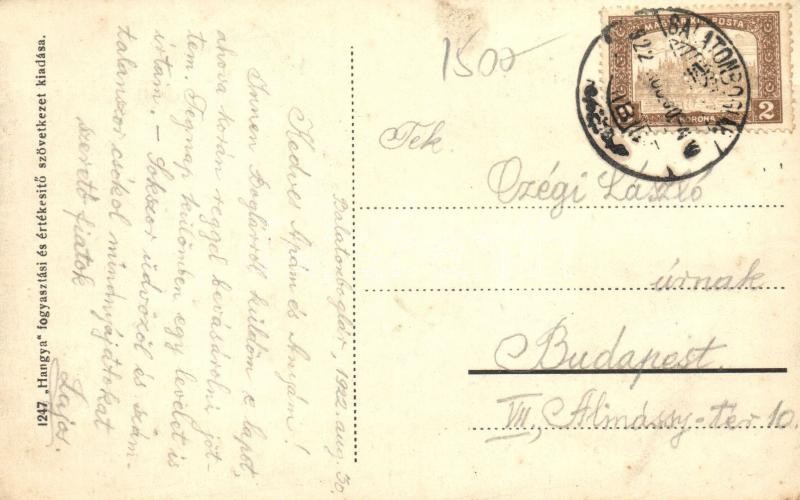 1247 „Hangya“ fogyasztási és értékesítő szövetkezet kiadása.
Balatonboglár, 1922. aug. 30.
Kedves Apám és Anyám!
Innen Boglárról küldöm e lapot,
ahova korán reggel bevásárolni jöt-
tem. Tegnap külömben egy levelet is
írtam. – Sokszor üdvözöl és szám-
talanszor csókol mindnyájatokat
szerető fiatok
Lajos.
1500
MAGYAR KIR. POSTA
2
KORONA
BALATONBOGLÁR
922
Tek
Czégi László
úrnak
Budapest.
VII, Almássy-tér 10.